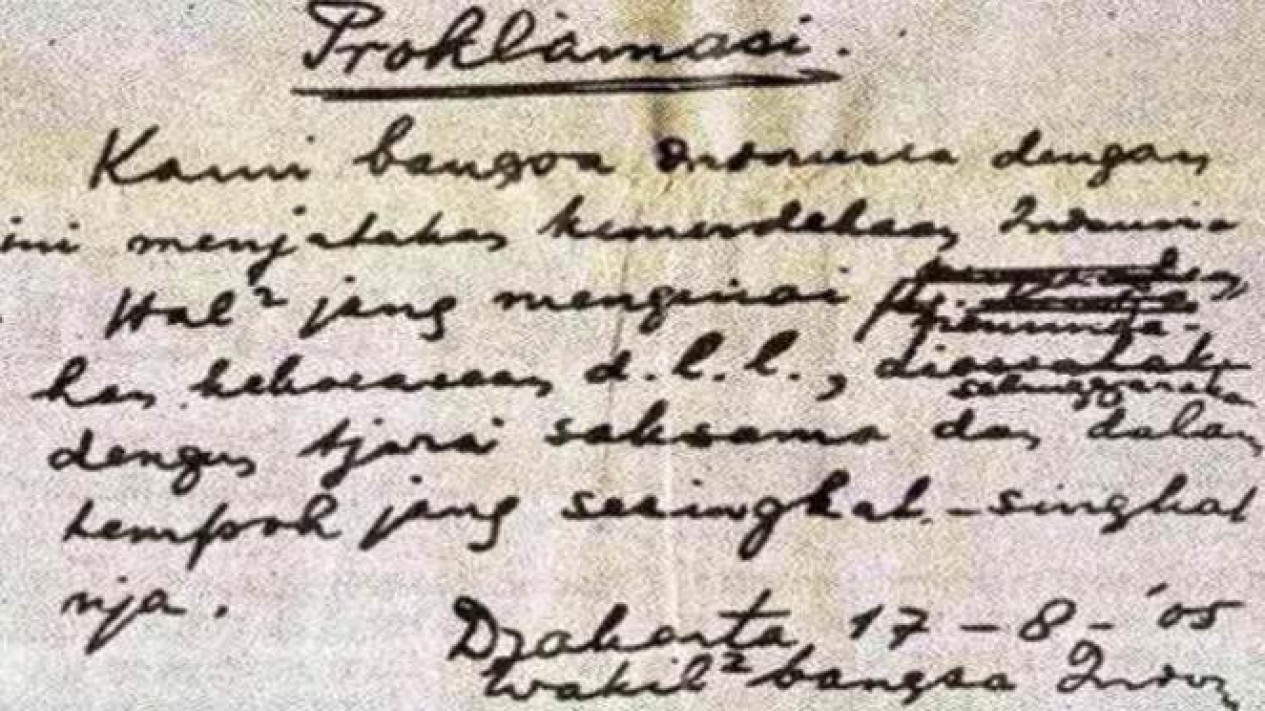 Proklamasi.
Kami bangsa Indonesia dengan
ini menjatakan kemerdekaan Indonesia
Hal² jang mengenai
pemindahan
kan kekoeasaan d.l.l.,
diselenggarakan
dengan tjara saksama dan dalam
tempoh jang sesingkat-singkat
nja.
Djakarta 17-8-'05
Wakil² bangsa Indon